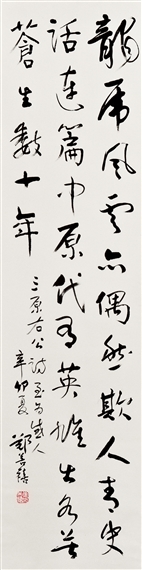 龍虎風雲亦偶然欺人青史
話連篇中原代有英雄出各苦
蒼生數十年
三原右公詩至為感人
辛卯夏 鄭善禧